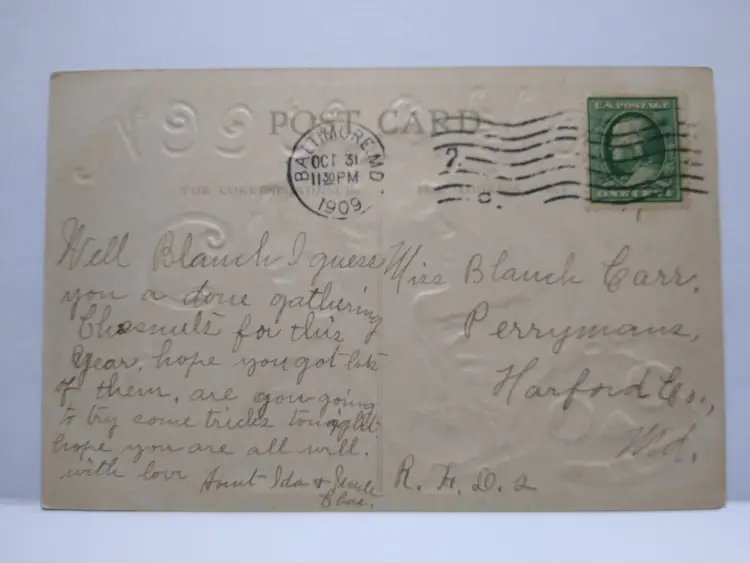 POST CARD
U.S. POSTAGE
BALTIMORE, MD.
OCT 31
11 30 PM
1909
7.
FOR CORRESPONDENCE
Well Blanch I guess
you a done gathering
Chesnuts for this
year, hope you got lots
of them, are you going
to try some tricks tonight
hope you are all well.
with love Aunt Ida &
Miss Blanch Carr.
Perrymans,
Harford Co.,
Md.
R. F. D. 2